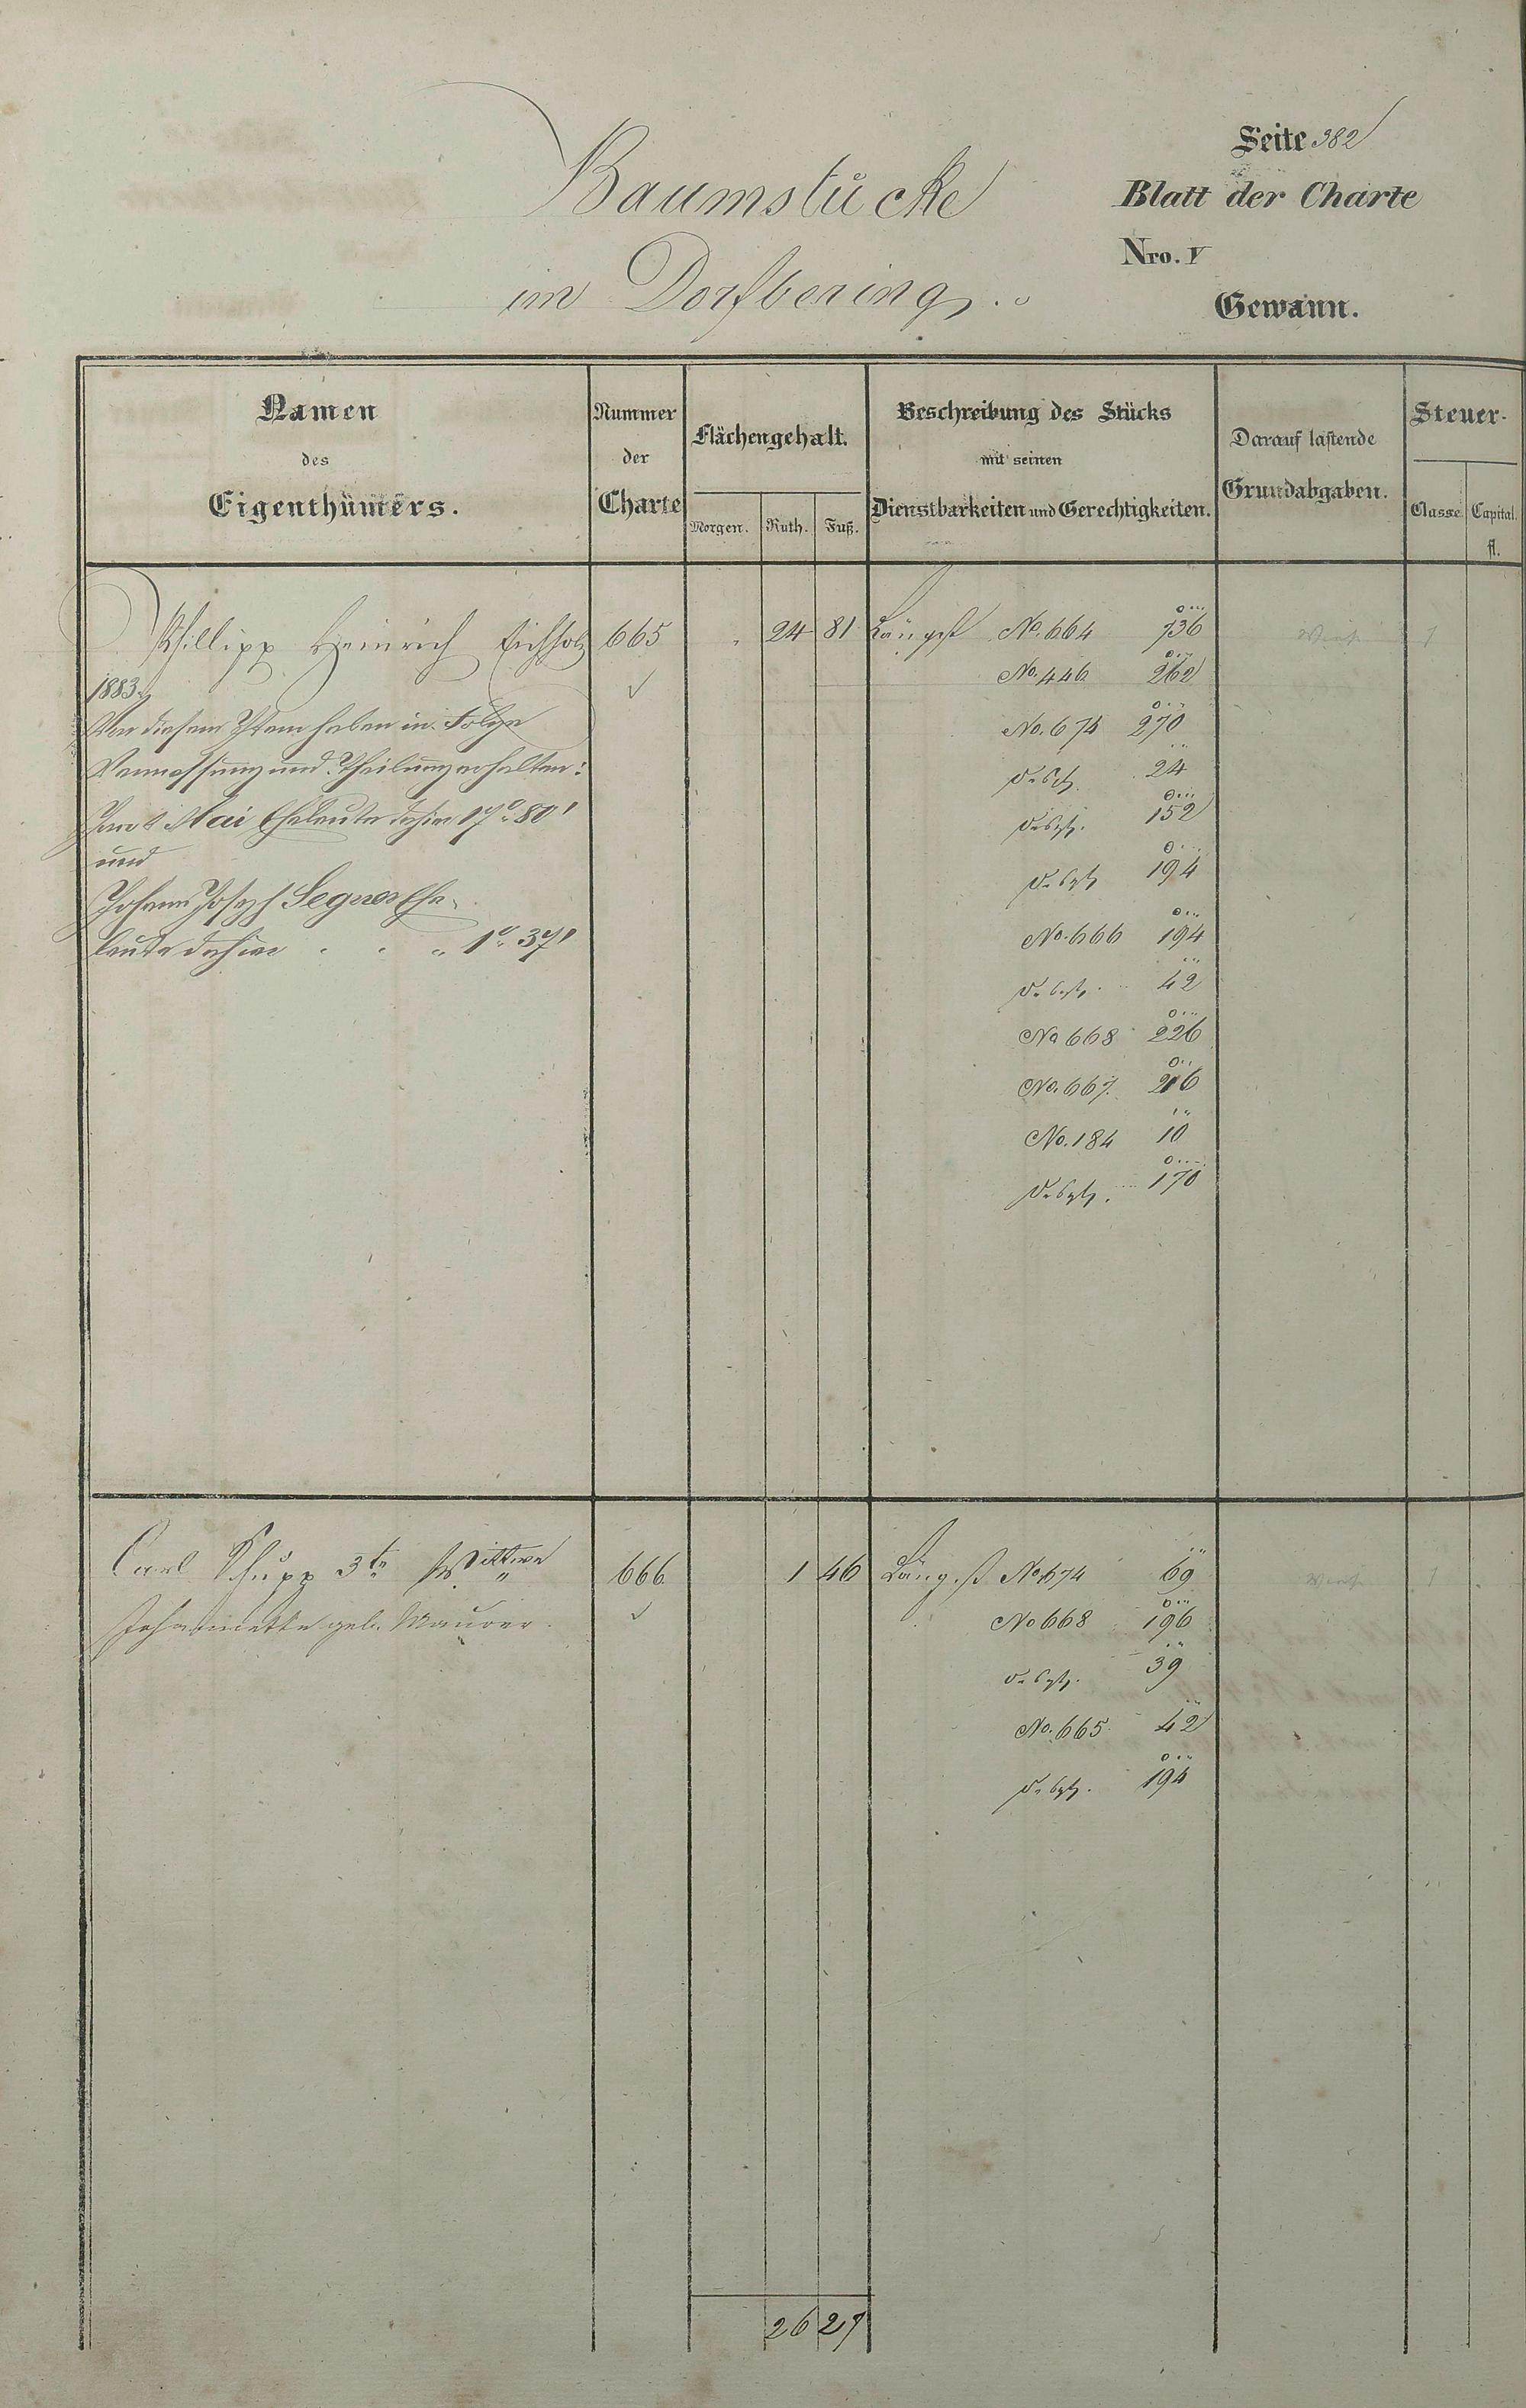 Seite 382
Baumstücke
Blatt der Charte
Nro. V
im Dorfbering.
Gewann.
Namen des Eigenthümers.
Nummer der Charte
Flächengehalt.
Morgen. Ruth. Fuß.
Beschreibung des Stücks mit seinen Dienstbarkeiten und Gerechtigkeiten.
Darauf lastende Grundabgaben.
Steuer-
Classe Capital.
fl.
Phillipp Heinrich Eichholz 665 " 24 81 Längst No. 664 736
1883. No. 446 262
Von diesem Item haben in Folge No. 674 270
Vermessung und Theilung erhalten: desgl. 24
Mai Eheleute dahier 17° 80' desgl. 152
und desgl. 194
Johann Joseph Segner Ehe- No. 666 194
leute dahier " 1° 37' desgl. 42
No 668 226
No. 667. 216
No. 184 10
desgl. 170
Carl Schupp 3te Wittwe 666 1 46 Längst No. 674 69
Johannette geb. Maurer. No 668 196
desgl. 39
No. 665 42
desgl. 194
26 27